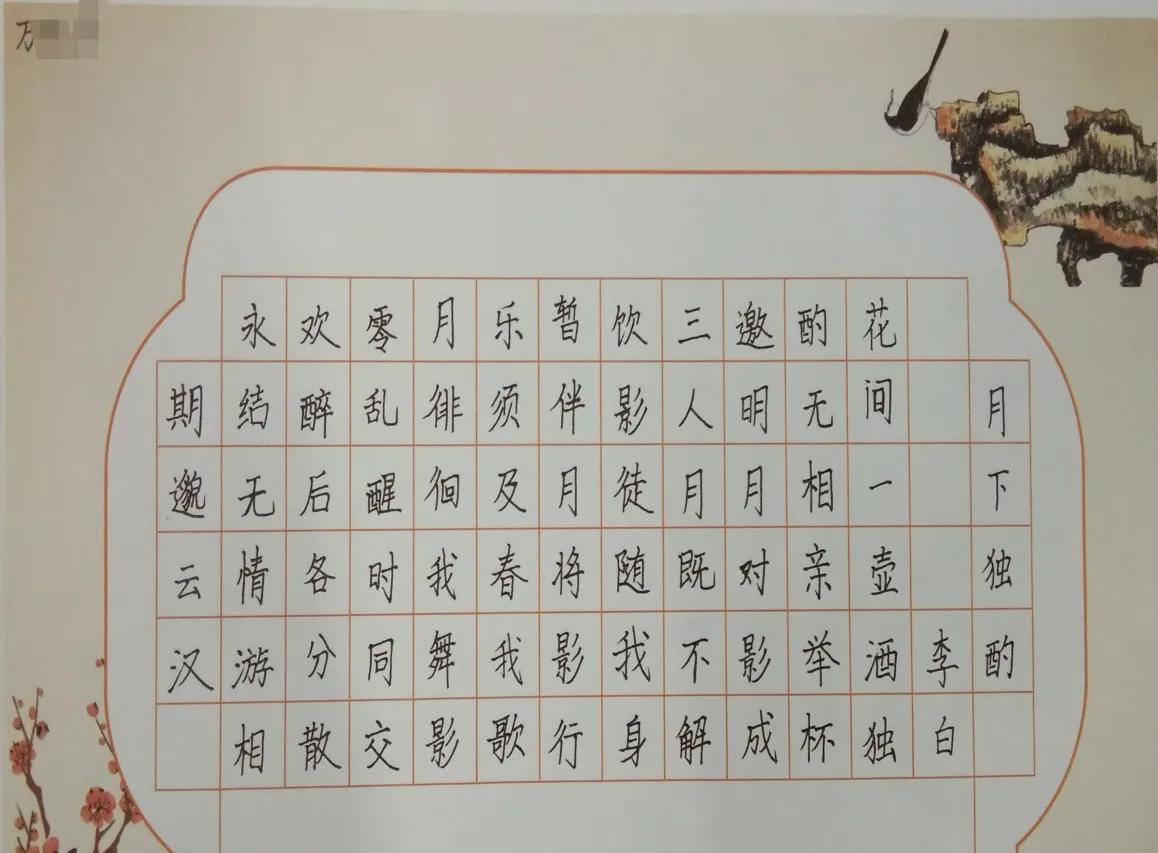 万
月下独酌
李白
花间一壶酒独
酌无相亲举杯
邀明月对影成
三人月既不解
饮影徒随我身
暂伴月将影行
乐须及春我歌
月徘徊我舞影
零乱醒时同交
欢醉后各分散
永结无情游相
期邈云汉